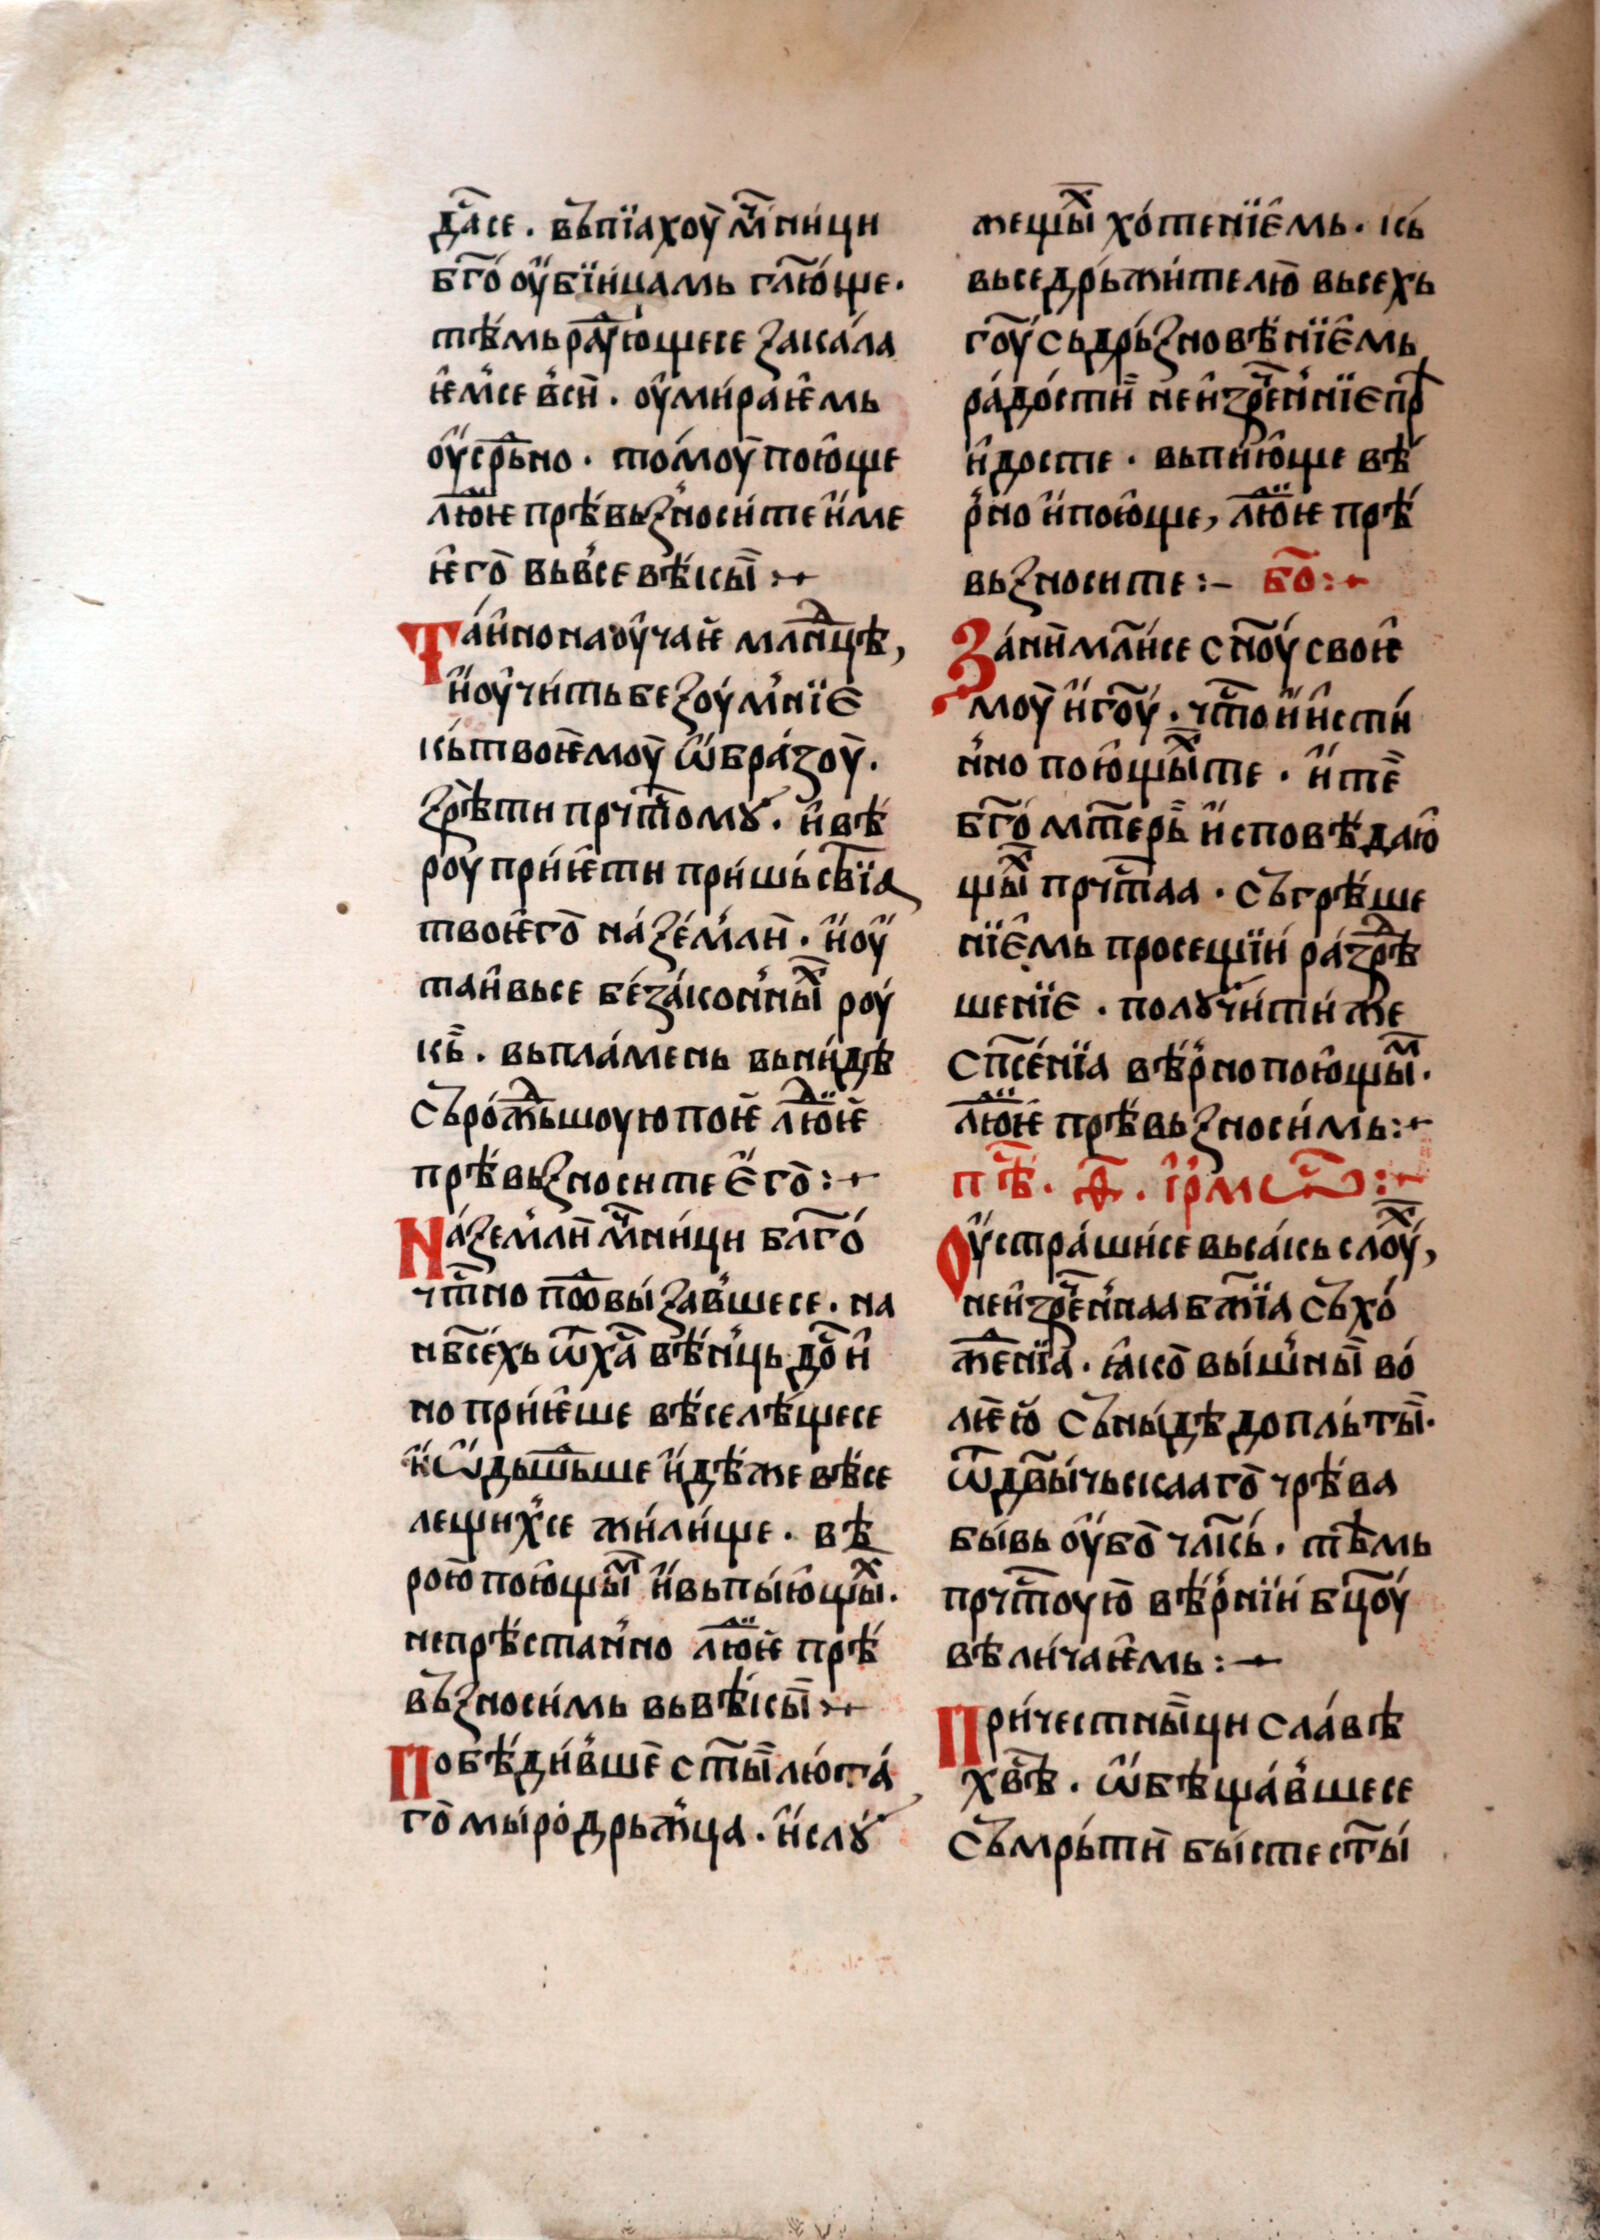 да҇се . въпїахоу҆ мⷱ҇ници
бг҃о оу҆бїи́цамь гл҃юще .
тѣ́мь раⷣую́щесе закала
ѥ҆м́се вси҆ . оу҆мира́ѥмь
оу҆срьⷣно . то́моу҆ пою́ще
лю́дїѥ прѣвьзноси́те и҆ ме
ѥ҆го҆ вьв́се вѣ́кы҆ :~
Таи҆но наоу҆чаи҆ млⷣнцѣ ,
и҆ оу҆чи́ть безоу́мнїе
кь твоѥ҆моу҆ ѡ҆бра́зоу҆ .
зрѣ́ти прчⷭ҇томꙋ . и҆ вѣ́
роу прїи́ѥти пришь́свїа
твоѥ҆го҆ на́ зе́мли҆ . и҆ оу҆
таи҆ вьсе беза́конныⷯ роу
кь҆ . вьпла́мень вьни́дѣ
съро́жⷣьшоую поѥ҆ лю́дїѥ
прѣвьзносите е҆го҆ :~
На́ земли҆ мⷱ҇ни́ци бл҃го́
чтⷭ҇но поⷣви́завшесе . на
нб҃сехь ѿ хⷭ҇а вѣ́нць до҇и҆
но прїи́ѥше вѣ́селѣ́щесе
и҆ ѡ҆дьшⷣьше и҆дѣ́же вѣ́се
лещихсе жили́ще . вѣ
рою҆ пою́щыⷨ и҆ вьпыю́щыⷯ .
непрѣ́стан́но лю́дїѥ прѣ́
възноси́мь вьвѣ́кы҆ :~
Побѣ́ди́вше҆ ст҃ы҆ лю́та́
го҆ мыро́дрьжца . и҆слꙋ
жещыⷯ хо́тенїе҆мь . кь
вьседрь́жи́телю҆ вьсехь
го҃у сьдрь́зновѣ́нїе҆мь
ра́до́сти҆ неи҆зре́ннїе пр
и҆досте . вьпию́ще вѣ́
рно и҆ пою́ще , лю́дїѥ прѣ́
вьзносите :~ бо҃ :~
За́ни҆ мл҃и́се сн҃оу свои҆
моу҆ и҆ го҃у . чтⷭ҇о и҆ и҆сти́
н́но пою́щыⷯ те . и҆ те҆
бг҃о мт҃ерь҆ и҆сповѣ́даю҆
щыⷯ прчⷭ҇таа . съгрѣ́ше
нїе҆мь просещїи́ ра́зⷣрѣ
шенїе . полꙋчи́ти же
сп҃се́нїа вѣ́рно пою́щыⷨ .
лю́дїѥ прѣ́вьзноси́мь :~
пѣⷭ҇ . ѳ҃ . і҆рмѡⷭ҇ :~
Оу҆стра́ши́се вьса́кь слоуⷯ ,
неи҆зре́ннаа бж҃їа съхо́
жⷣенїа . ꙗ҆ко҆ вы́шны҆ во́
лѥю҆ съны́дѣ до пль́ты҆ .
ѿ дв҃ы́чьскааго҆ чрѣ́ва
бы́вь оу҆бо҆ чл҃кь́ . тѣ́мь
прчⷭ҇тоую҆ вѣ́рнїи́ бц҃оу
вѣли́чаѥ҆мь :~
При́честны҆ци сла́вѣ
хв҃ѣ . ѡ҆бѣща́вшесе
съмрь́ти҆ бы́сте ст҃ы